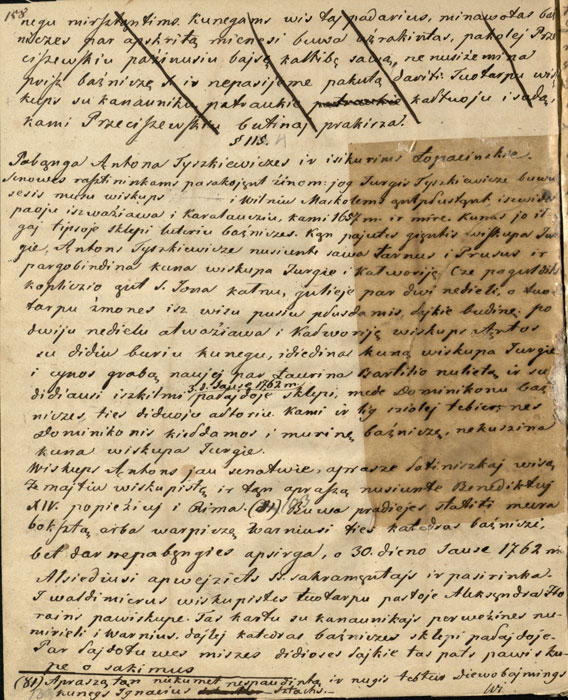 158.
negu mirsztantims. Kunegams wis tą padarius, minawotas baž
niczes par apskritą mienesi buwa użrakintas, pakolej Prze
ciszewskiu pażinusiu bajsę kaltibę sawą, ne nużemina
prijsz bażniczę ir nepasijeme pakutą dariti: Tuotarpu wis
kups su kanauniku patraukie kaltuoju i sądą,
kami Przeciszewskiu butinaj prakisza.
§ 115.
Pabąnga Antona Tyszkiewiczes ir isikurius Łopacinskie.
Senowes rasztininkams pasakojąnt żinom: jog Jurgis Tyszkiewicze buwu
sesis muru wiskups i Wilniu Maskolems ąntplustąnt iszwidą
paoju iszważiawa i Karalaucziu, kami 1657 m: ir mire. Kunas jo il
gaj tipsojo sklepi luteriu bażniczes. Kąn pajutes giąntis wiskupa Jur
gie, Antons Tyszkiewicze nusiunte sawa tarnus i Prusus ir
pargabindina kuna wiskupa Jurgie i Kalwariję. Cze pagul
kopliczio ąnt s. Jona kalnu, gulieje par dwi nedieli, o tuo
tarpu żmones isz wisu pusiu plusdamis, lajkie budinę, po
dwiju nedielu atważiawa i Kalwariję wiskups Ąntos
su didiu buriu kunegu, idiedinas kuną wiskupa Jurgie
i cynos grabą naujej par Laurina Bartilio nulietą ir su
didiausi iszkilmi 3. 8. Sause 1762 m. palajdoje sklepi, mede Dominikonu baż
niczes, ties didwoju altoriu. Kami ir lig sziolej tebier: nes
Dominikonis kieldamos i murinę bażniczę, nekuszina
kuna wiskupa Jurgie.
Wiskups Antons jau senatwie, aprasze lotiniszkaj wisą
Żemajtiu wiskupistę ir tąn apraszą nusiunte Benediktuj
XIV. popieżiuj i Rima. (81) Buwa pradiejes statiti mura
boksztą arba warpiczę Warniusi ties katedras bażniczi,
bet dar nepabąngies apsirga, o 30. dieno Sause 1762 m
Alsiedziusi apwejziets ss. sakramąntajs ir pasirinka.
I waldimierus wiskupistes tuotarpu pastoje Aleksąndra Ho
rains pawiskupe. Tas kartu su kanaunikajs parweżines nu
mirieli i Warnius. dajlej katedras bażniczes sklepi palajdoje.
Par lajdotuwes miszes didioses lajkie tas pats pawisku-
pe o sakimus
(81) Apraszą tąn nukumet nespaudinta ir nugis tebtur Diewobajmings
kunegs Ignacius Sztachs.